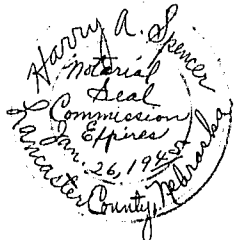 Harry A. Spencer
Notarial
Seal
Commission
Expires
Jan. 26, 1945
Lancaster County, Nebraska